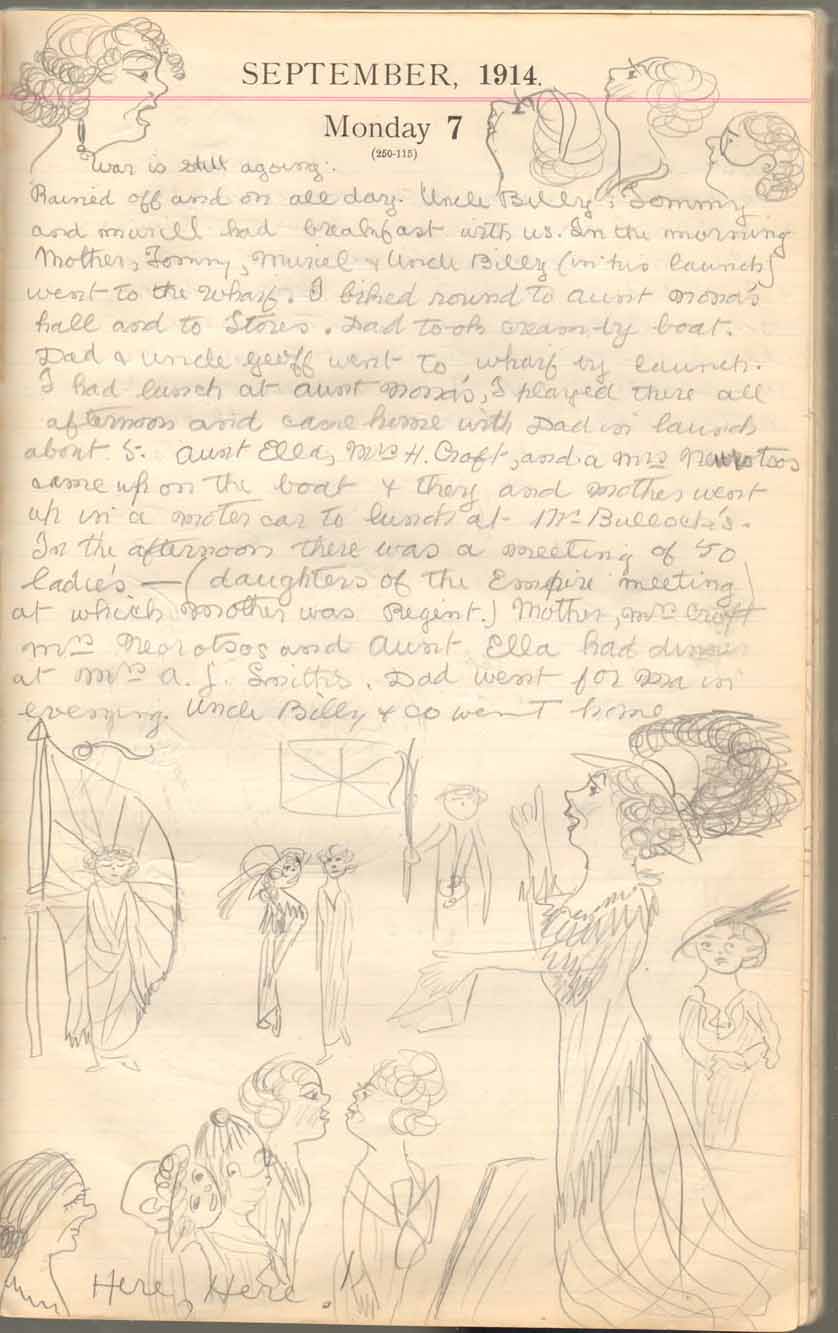 SEPTEMBER, 1914.
Monday 7
(250-115)
War is still agoing.
Rained off and on all day. Uncle Billy, Tommy
and muriell had breakfast with us. In the morning
Mother, Tommy, Muriel & Uncle Billy (in his launch)
went to the wharf. I biked round to aunt mona's
hall and to Stores. Dad took cream by boat.
Dad & uncle Geoff went to wharf by launch.
I had lunch at aunt mona's, I played there all
afternoon and came home with Dad in launch
about 5. aunt Ella, Mrs H. Croft, and a Mrs
came up on the boat & they and mother went
up in a moter car to lunch at Mr Bullocke's.
In the afternoon there was a meeting of 50
ladie's — (daughters of the Empire meeting)
at which mother was Regent.) Mother, Mrs Croft
Mrs and aunt Ella had dinner
at Mrs a. J. Smith's. Dad went for Ma in
evenying. Uncle Billy & co went home
Here, Here!